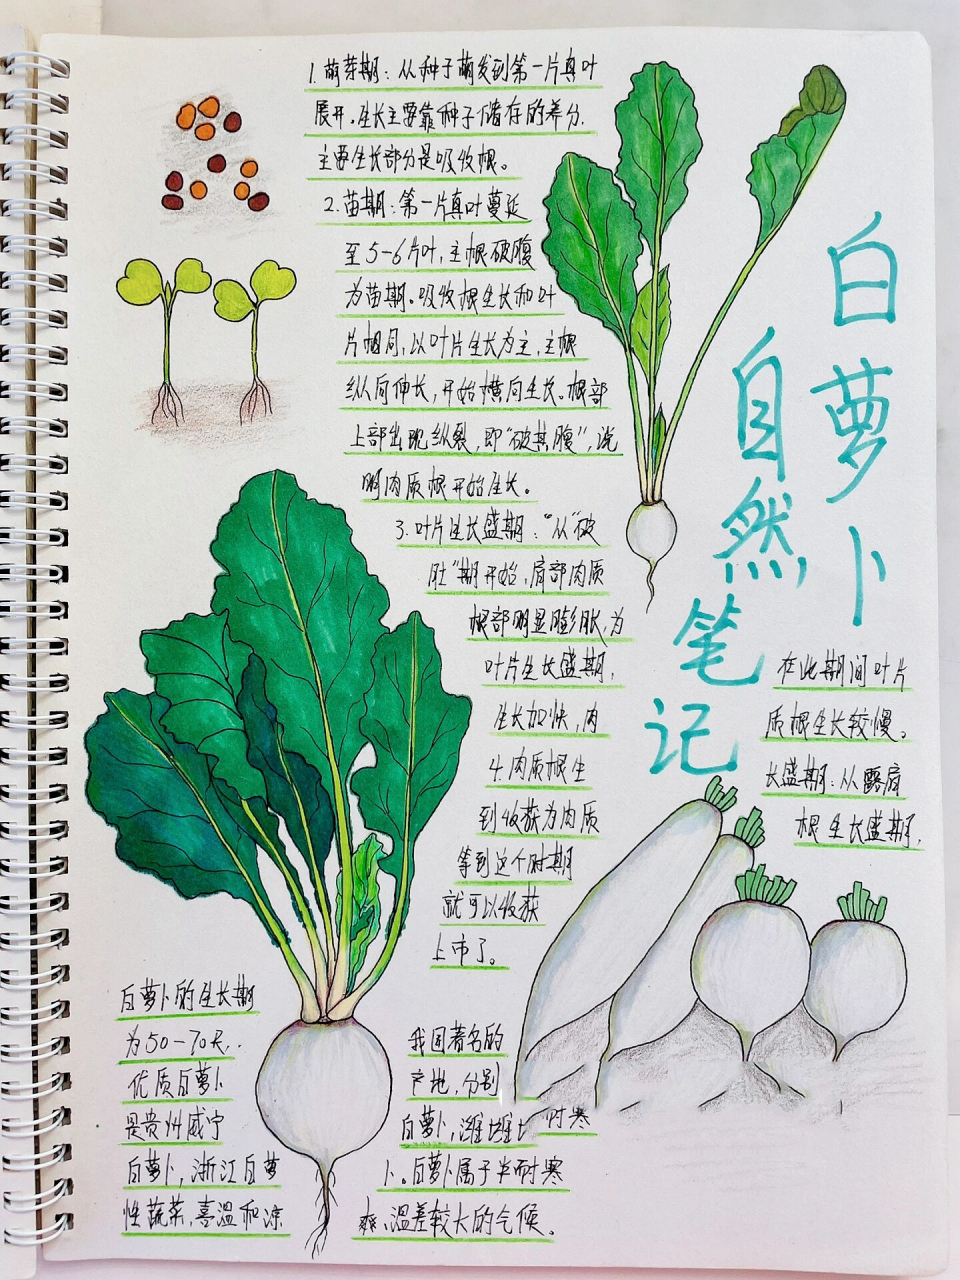 白萝卜
自然
笔记
1.萌芽期：从种子萌发到第一片真叶
展开。生长主要靠种子储存的养分.
主要生长部分是吸收根。
2.苗期：第一片真叶蔓延
至5-6片叶，主根破腹
为苗期。吸收根生长和叶
片相同，以叶片生长为主，主根
纵向伸长，开始横向生长。根部
上部出现纵裂，即“破其腹”，说
明肉质根开始生长。
3.叶片生长盛期：“从“破
肚”期开始，肩部肉质
根部明显膨胀，为
叶片生长盛期，
在此期间叶片
生长加快，肉
质根生长较慢。
4.肉质根生
长盛期：从露肩
到收获为肉质
根生长盛期，
等到这个时期
就可以收获
上市了。
白萝卜的生长期
为50-70天，
优质白萝卜
是贵州威宁
白萝卜，浙江白萝
性蔬菜，喜温和凉
我国著名的
产地，分别
白萝卜，潍 耐寒
卜。白萝卜属于半耐寒
爽、温差较大的气候。